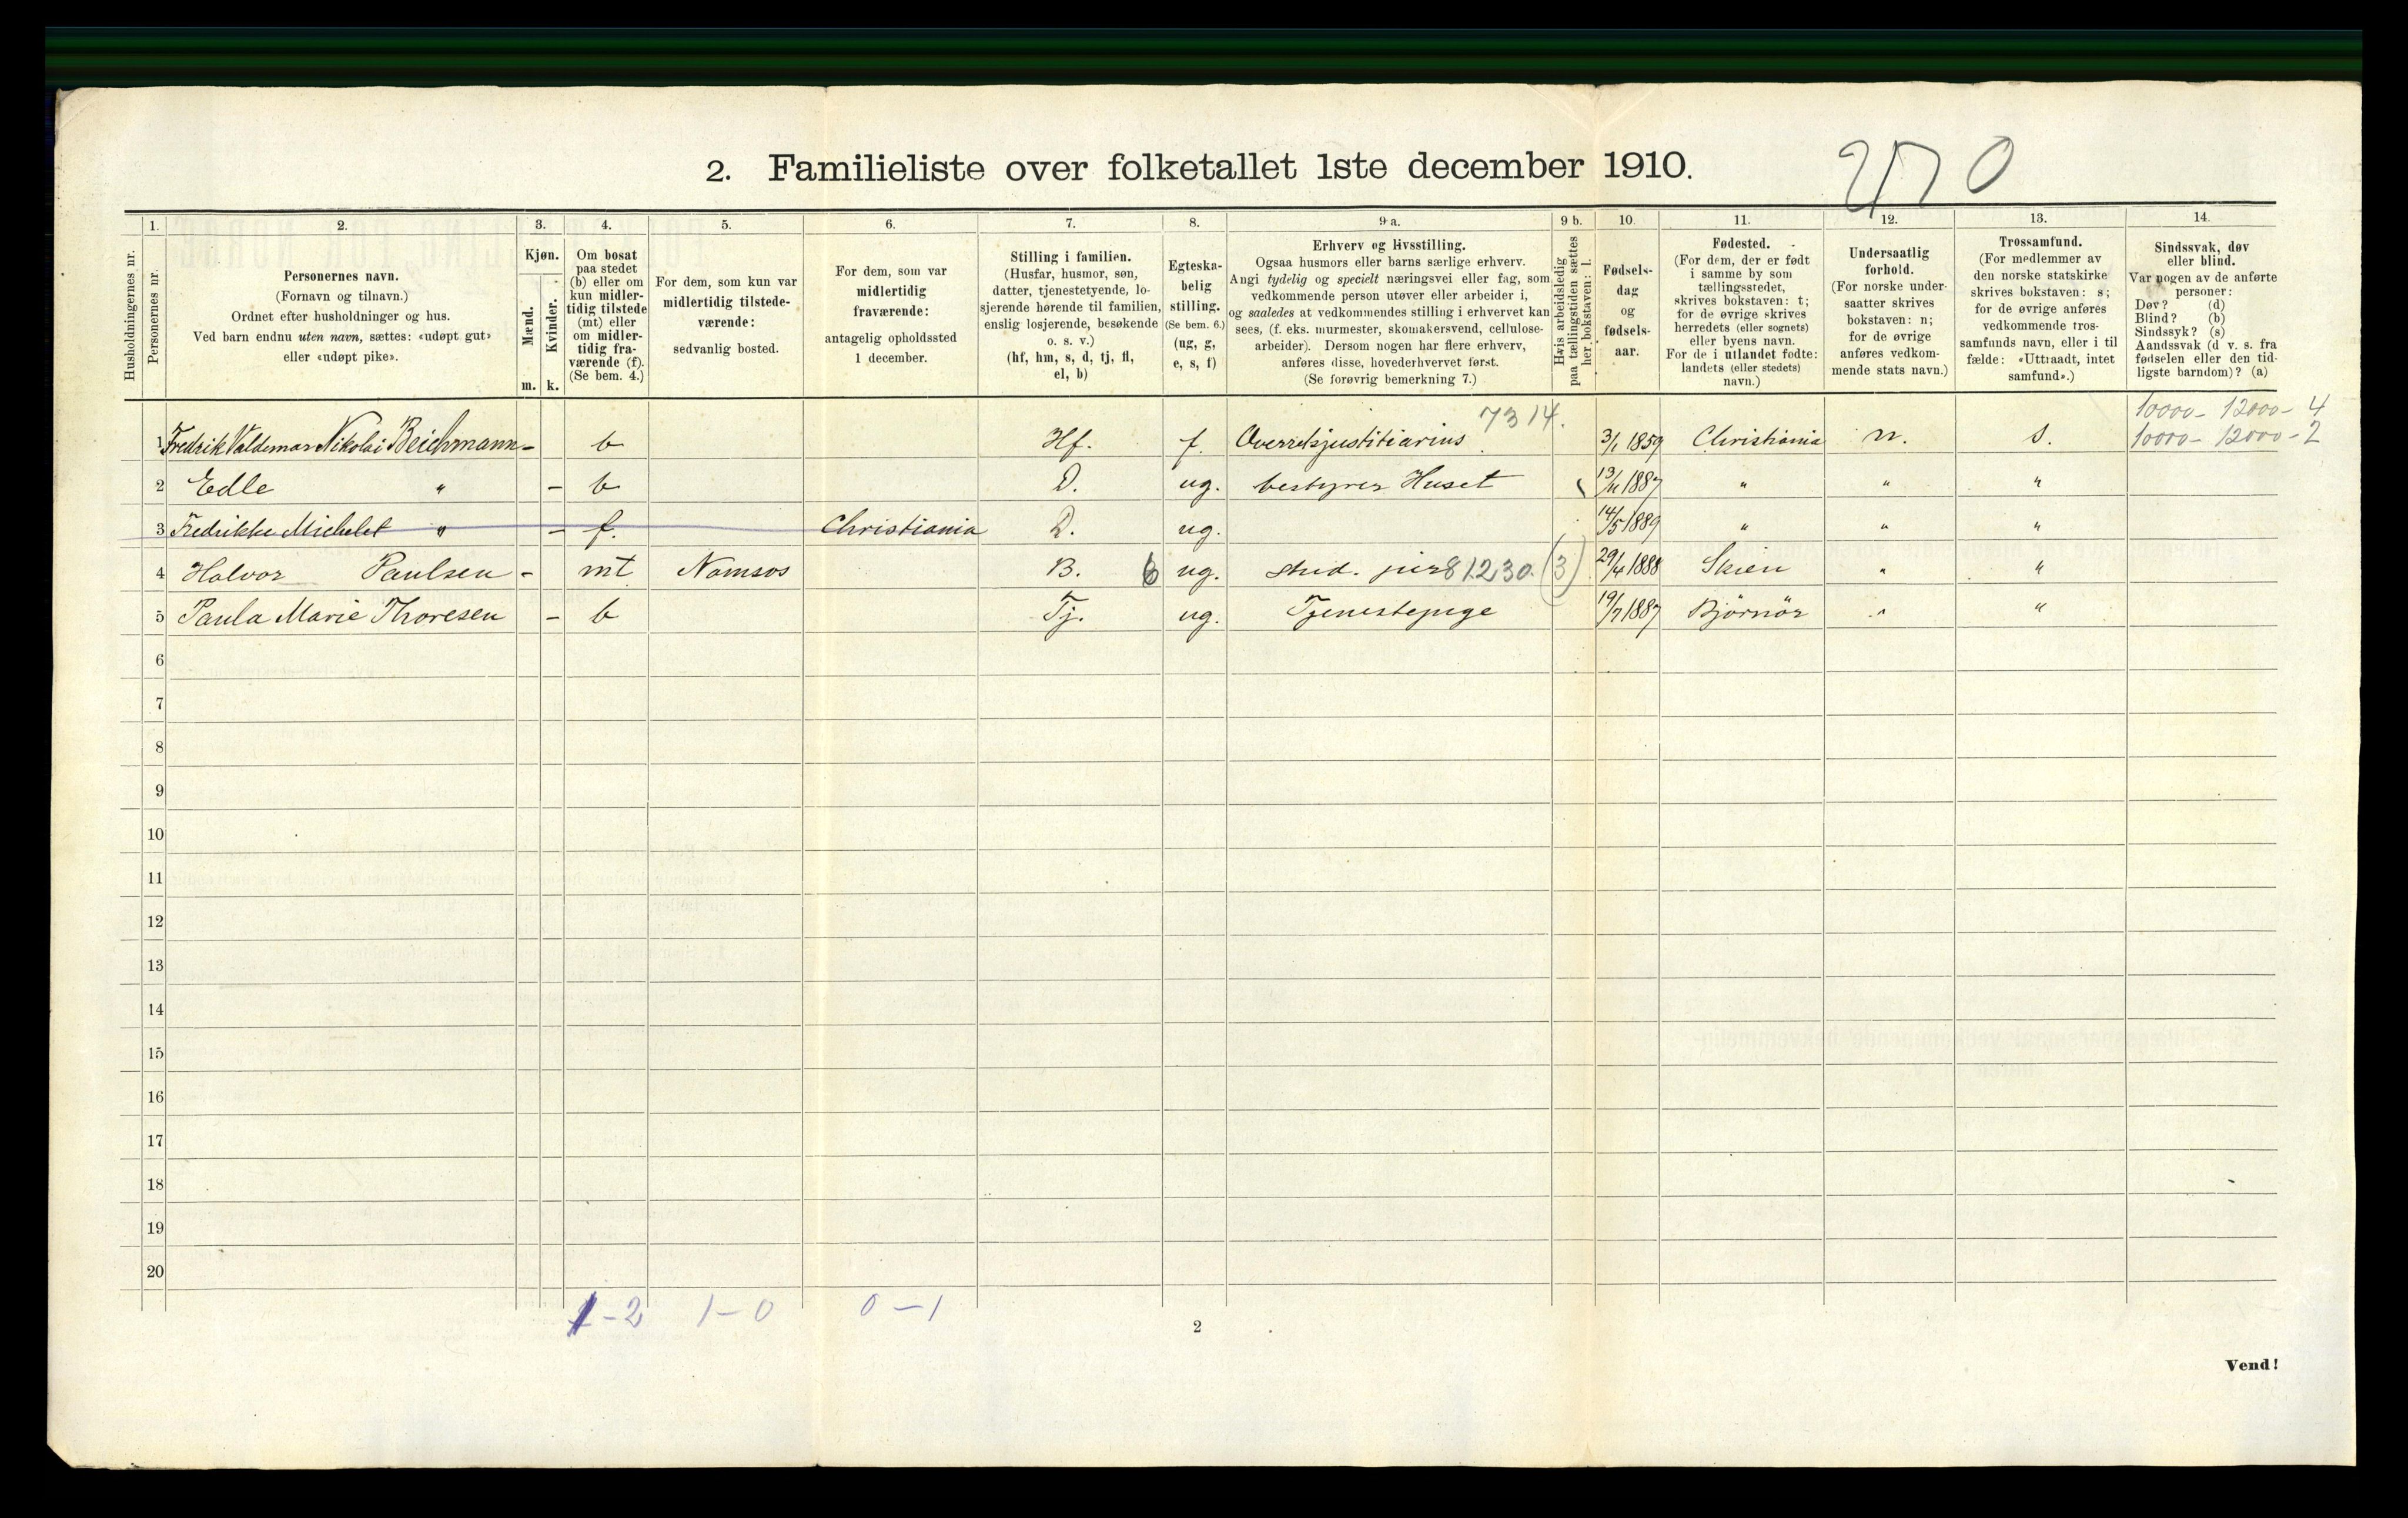 2. Familieliste over folketallet 1ste december 1910.
270
Husholdningernes nr.
1.
Personernes nr.
2.
Personernes navn.
(Fornavn og tilnavn.)
Ordnet efter husholdninger og hus.
Ved barn endnu uten navn, sættes: «udøpt gut»
eller «udøpt pike».
3.
Kjøn.
Mænd.
Kvinder.
m. k.
4.
Om bosat
paa stedet
(b) eller om
kun midler-
tidig tilstede
(mt) eller
om midler-
tidig fra-
værende (f).
(Se bem. 4.)
5.
For dem, som kun var
midlertidig tilstede-
værende:
sedvanlig bosted.
6.
For dem, som var
midlertidig
fraværende:
antagelig opholdssted
1 december.
7.
Stilling i familien.
(Husfar, husmor, søn,
datter, tjenestetyende, lo-
sjerende hørende til familien,
enslig losjerende, besøkende
o. s. v.)
(hf, hm, s, d, tj, fl,
el, b)
8.
Egteska-
belig
stilling.
(Se bem. 6.)
(ug, g,
e, s, f)
9 a.
Erhverv og livsstilling.
Ogsaa husmors eller barns særlige erhverv.
Angi tydelig og specielt næringsvei eller fag, som
vedkommende person utøver eller arbeider i,
og saaledes at vedkommendes stilling i erhvervet kan
sees, (f. eks. murmester, skomakersvend, cellulose-
arbeider). Dersom nogen har flere erhverv,
anføres disse, hovederhvervet først.
(Se forøvrig bemerkning 7.)
9 b.
Hvis arbeidsledig
paa tællingstiden sættes
her bokstaven: l.
10.
Fødsels-
dag
og
fødsels-
aar.
11.
Fødested.
(For dem, der er født
i samme by som
tællingsstedet,
skrives bokstaven: t;
for de øvrige skrives
herredets (eller sognets)
eller byens navn.
For de i utlandet fødte:
landets (eller stedets)
navn.)
12.
Undersaatlig
forhold.
(For norske under-
saatter skrives
bokstaven: n;
for de øvrige
anføres vedkom-
mende stats navn.)
13.
Trossamfund.
(For medlemmer av
den norske statskirke
skrives bokstaven: s;
for de øvrige anføres
vedkommende tros-
samfunds navn, eller i til
fælde: «Uttraadt, intet
samfund».)
14.
Sindssvak, døv
eller blind.
Var nogen av de anførte
personer:
Døv? (d)
Blind? (b)
Sindssyk? (s)
Aandssvak (d. v. s. fra
fødselen eller den tid-
ligste barndom)? (a)
7314. 10000 - 12000 - 4
1 Fredrik Valdemar Nikolai Beichmann - b Hf. f. Overretsjustitiarius 3/1 1859 Christiania n. s. 10000 - 12000 - 2
2 Edle " - b D. ug. bestyrer Huset 13/11 1887 " " "
3 Fredrikke Michelet " - f. Christiania D. ug. 14/5 1889 " " "
4 Halvor Paulsen - mt Namsos B. 6 ug. stud. jur 81230. (3) 29/4 1888 Skien " "
5 Paula Marie Thoresen - b Tj. ug. Tjenestepige 19/7 1887 Bjørnør " "
6
7
8
9
10
11
12
13
14
15
16
17
18
19
20
1-2 1-0 0-1
2
Vend!